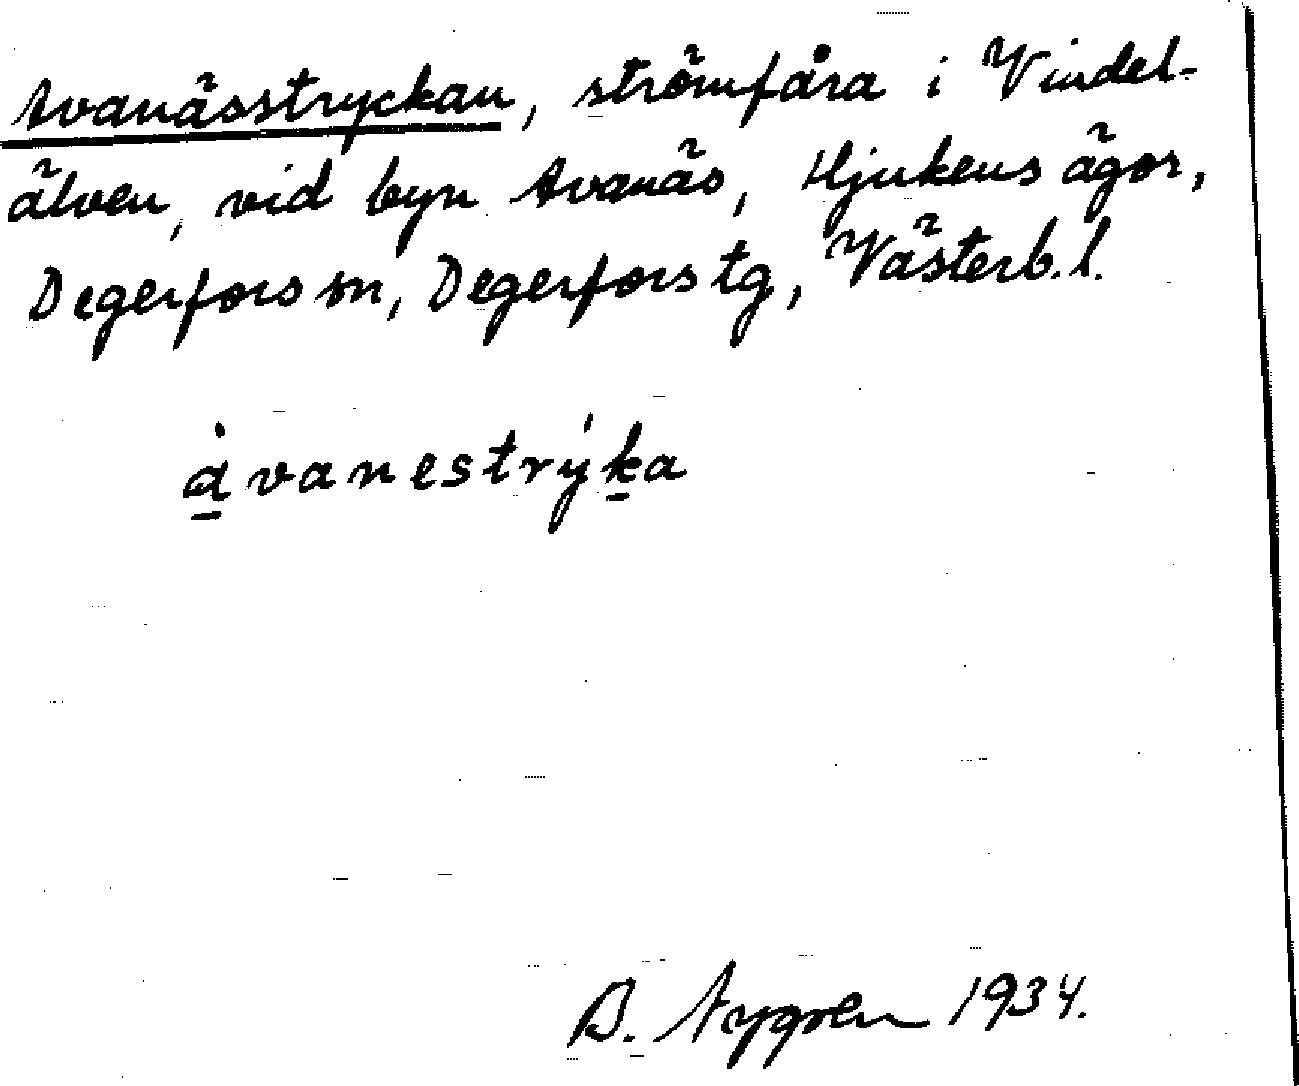 Avanässtryckan, strömfåra i Vindel-
älven, vid byn Avanäs, Hjukens ägor,
Degerfors sn, Degerfors tg, Västerb. l.
ȧ̱vanestrýḵa
B. Nygren 1934.